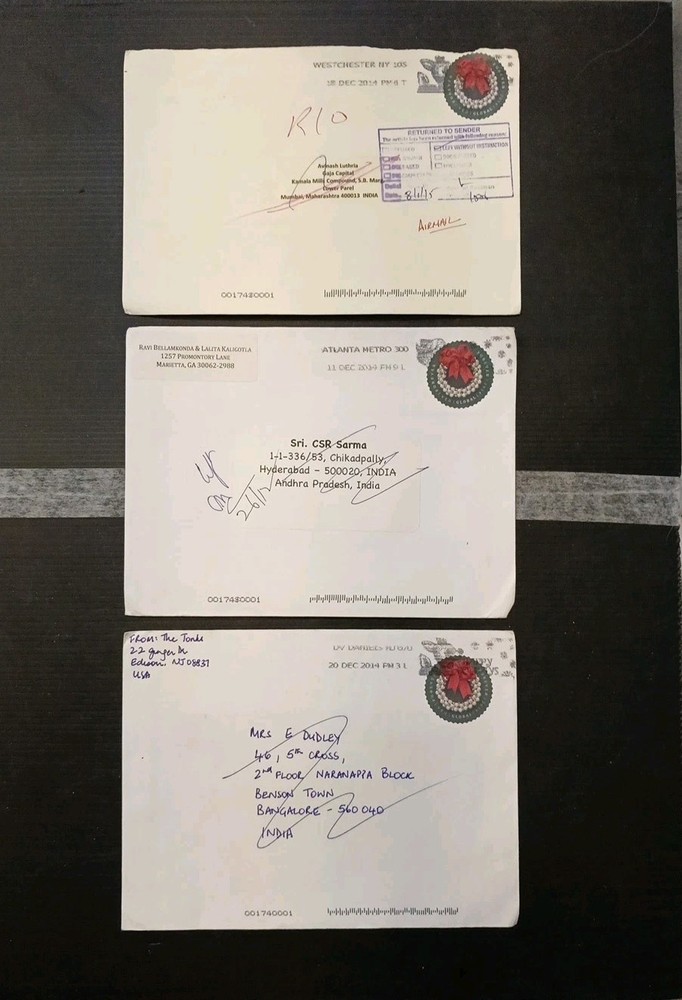 WESTCHESTER NY 105
18 DEC 2014 PM 6 T
R/O
RETURNED TO SENDER
The article has been returned with following reason:
LEFT WITHOUT INSTRUCTION
Avinash Luthria
Gaja Capital
Kamala Mills Compound, S.B. Marg
Lower Parel
Mumbai, Maharashtra 400013 INDIA
8/1/15
AIRMAIL
0017480001
RAVI BELLAMKONDA & LALITA KALIGOTLA
1257 PROMONTORY LANE
MARIETTA, GA 30062-2988
ATLANTA METRO 300
11 DEC 2014 PM 9 L
GLOBAL
Sri. CSR Sarma
1-1-336/53, Chikadpally,
Hyderabad – 500020, INDIA
Andhra Pradesh, India
26/12
0017480001
FROM: The Tonks
22 Ginger Dr
Edison. NJ 08837
USA
DV DANIELS NJ 070
20 DEC 2014 PM 3 L
GLOBAL
MRS E DUDLEY
46, 5TH CROSS,
2ND FLOOR NARANAPPA BLOCK
BENSON TOWN
BANGALORE - 560040
INDIA
001740001